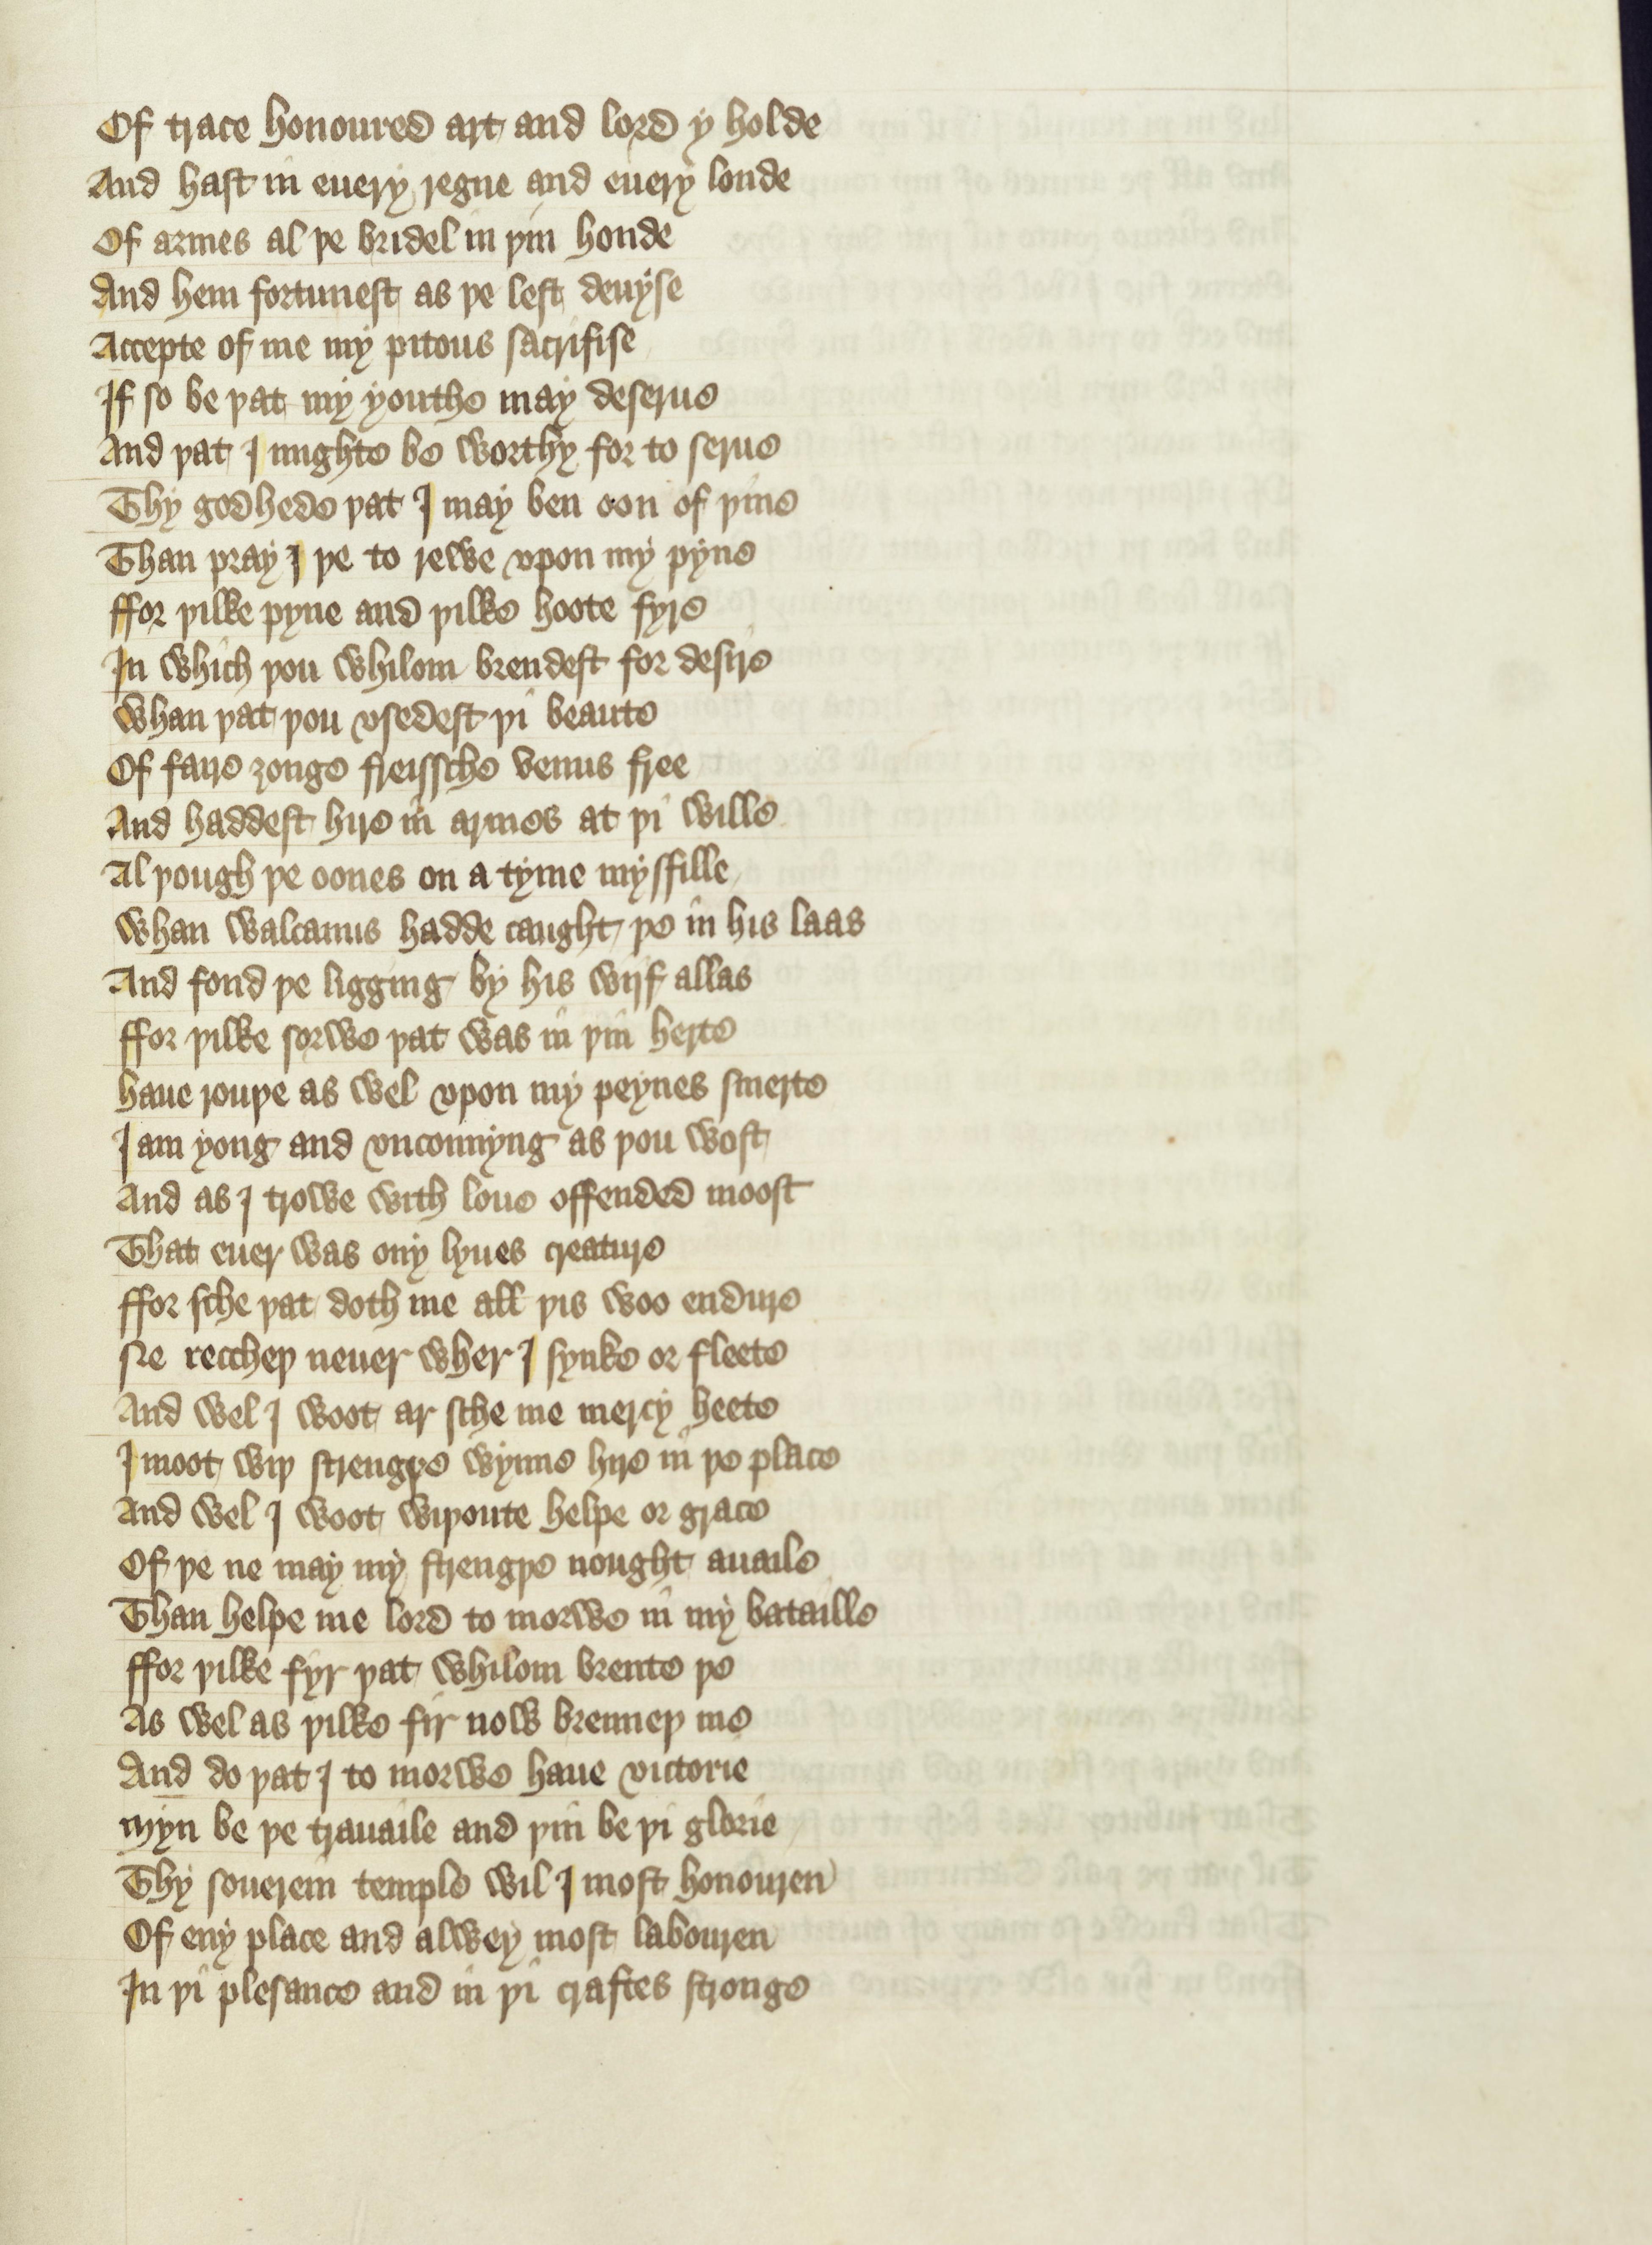 Of trace honoured art and lord y holde
And hast in euery regne and euery londe
Of armes al þe bridel in þin honde
And hem fortunest as þe lest deuyse
Accepte of me my pitous sacrifise
If so be þat my youthe may deserue
And þat I mighte be worthy for to serue
Thy godhede þat I may ben oon of þine
Than pray I þe to rewe vpon my pyne
ffor þilke pyne and þilke hoote fyre
In which þou whilom brendest for desire
Whan þat þou vsedest þi beaute
Of faire ȝonge freissche venus free
And haddest hire in armes at þi wille
Al þough þe oones on a tyme mysfille
Whan Walcanus hadde caught þe in his laas
And fond þe ligging by his wijf allas
ffor þilke sorwe þat was in þin herte
haue rouþe as wel vpon my peynes smerte
I am yong and vnconnyng as þou wost
And as I trowe with loue offended moost
That euer was ony lyues creature
ffor sche þat doth me all þis woo endure
Ne reccheþ neuer wher I synke or fleete
And wel I woot ar sche me mercy heete
I moot wiþ strengþe wynne hire in þe place
And wel I woot wiþoute helpe or grace
Of þe ne may my strengþe nought auaile
Than helpe me lord to morwe in my bataille
ffor þilke fyr þat whilom brente þe
As wel as þilke fir now brenneþ me
And do þat I to morwe haue victorie
Myn be þe trauaile and þin be þi glorie
Thy souerein temple wil I most honouren
Of eny place and alwey most labouren
In þi plesance and in þi craftes stronge